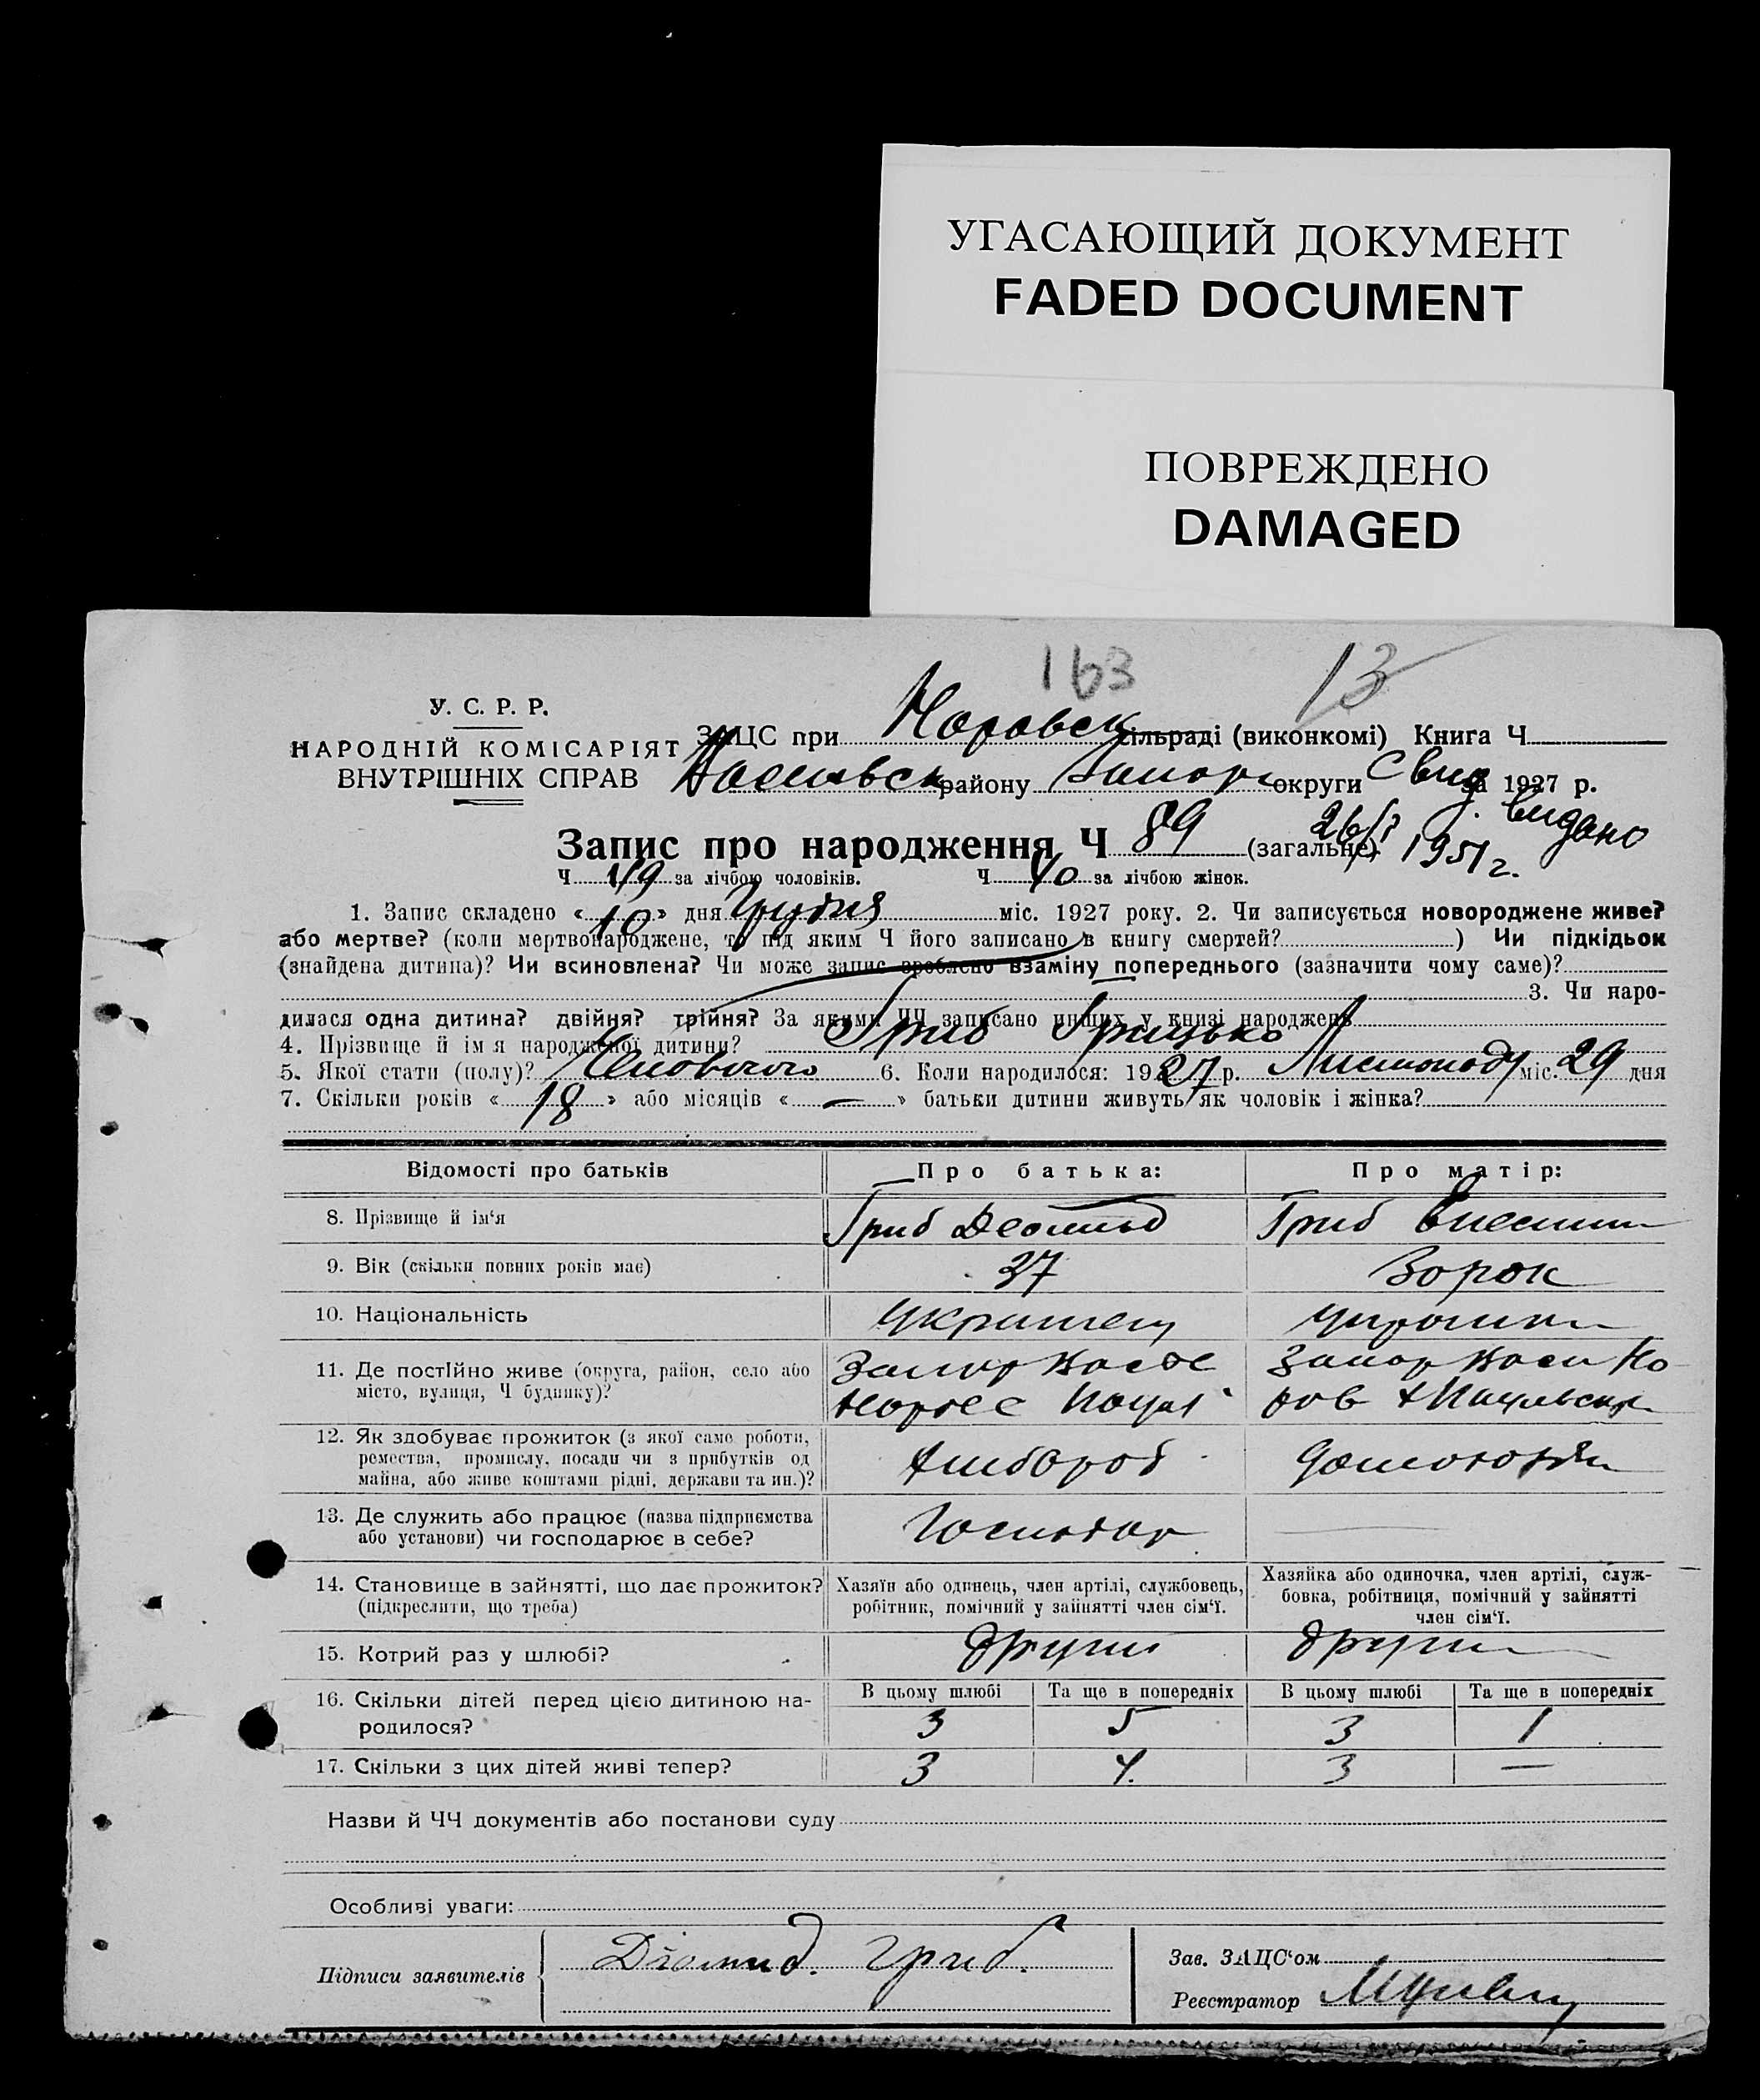 УГАСАЮЩИЙ ДОКУМЕНТ
FADED DOCUMENT
ПОВРЕЖДЕНО
DAMAGED
163 13
У. С. Р. Р.
НАРОДНІЙ КОМІСАРІЯТ
ВНУТРІШНІХ СПРАВ
ЗАЦС при сільраді (виконкомі) Книга Ч
району Запор округи за 1927 р.
Свид. видано
26/ 1951 г.
Запис про народження Ч 89 (загальне)
Ч 49 за лічбою чоловіків. Ч 40 за лічбою жінок.
1. Запис складено « 10 » дня Грудня міс. 1927 року. 2. Чи записується новороджене живе?
або мертве? (коли мертвонароджене, то під яким Ч його записано в книгу смертей? ) Чи підкідьок
(знайдена дитина)? Чи всиновлена? Чи може запис зроблено взаміну попереднього (зазначити чому саме)?
3. Чи наро-
дилася одна дитина? двійня? трійня? За якими ЧЧ записано инших у книзі народжень
4. Прізвище й ім я народженої дитини? Гриб Грицько
5. Якої стати (полу)? 6. Коли народилося: 1927 р. Листопаду міс. 29 дня
7. Скільки років « 18 » або місяців « — » батьки дитини живуть як чоловік і жінка?
Відомості про батьків Про батька: Про матір:
8. Прізвище й ім'я Гриб Гриб
9. Вік (скільки повних років має) 37 Зорок
10. Національність
11. Де постійно живе (округа, район, село або
місто, вулиця, Ч будинку)?
12. Як здобуває прожиток (з якої саме роботи,
ремества, промислу, посади чи з прибутків од
майна, або живе коштами рідні, держави та ин.)?
13. Де служить або працює (назва підприємства
або установи) чи господарює в себе? Господар
14. Становище в зайнятті, що дає прожиток?
(підкреслити, що треба)
Хазяїн або одинець, член артілі, службовець,
робітник, помічний у зайнятті член сім'ї.
Хазяйка або одиночка, член артілі, служ-
бовка, робітниця, помічний у зайнятті
член сім'ї.
15. Котрий раз у шлюбі? други други
16. Скільки дітей перед цією дитиною на-
родилося?
В цьому шлюбі Та ще в попередніх В цьому шлюбі Та ще в попередніх
3 5 3 1
17. Скільки з цих дітей живі тепер? 3 4. 3 —
Назви й ЧЧ документів або постанови суду
Особливі уваги:
Підписи заявителів Діомид. Гриб.
Зав. ЗАЦС'ом
Реєстратор